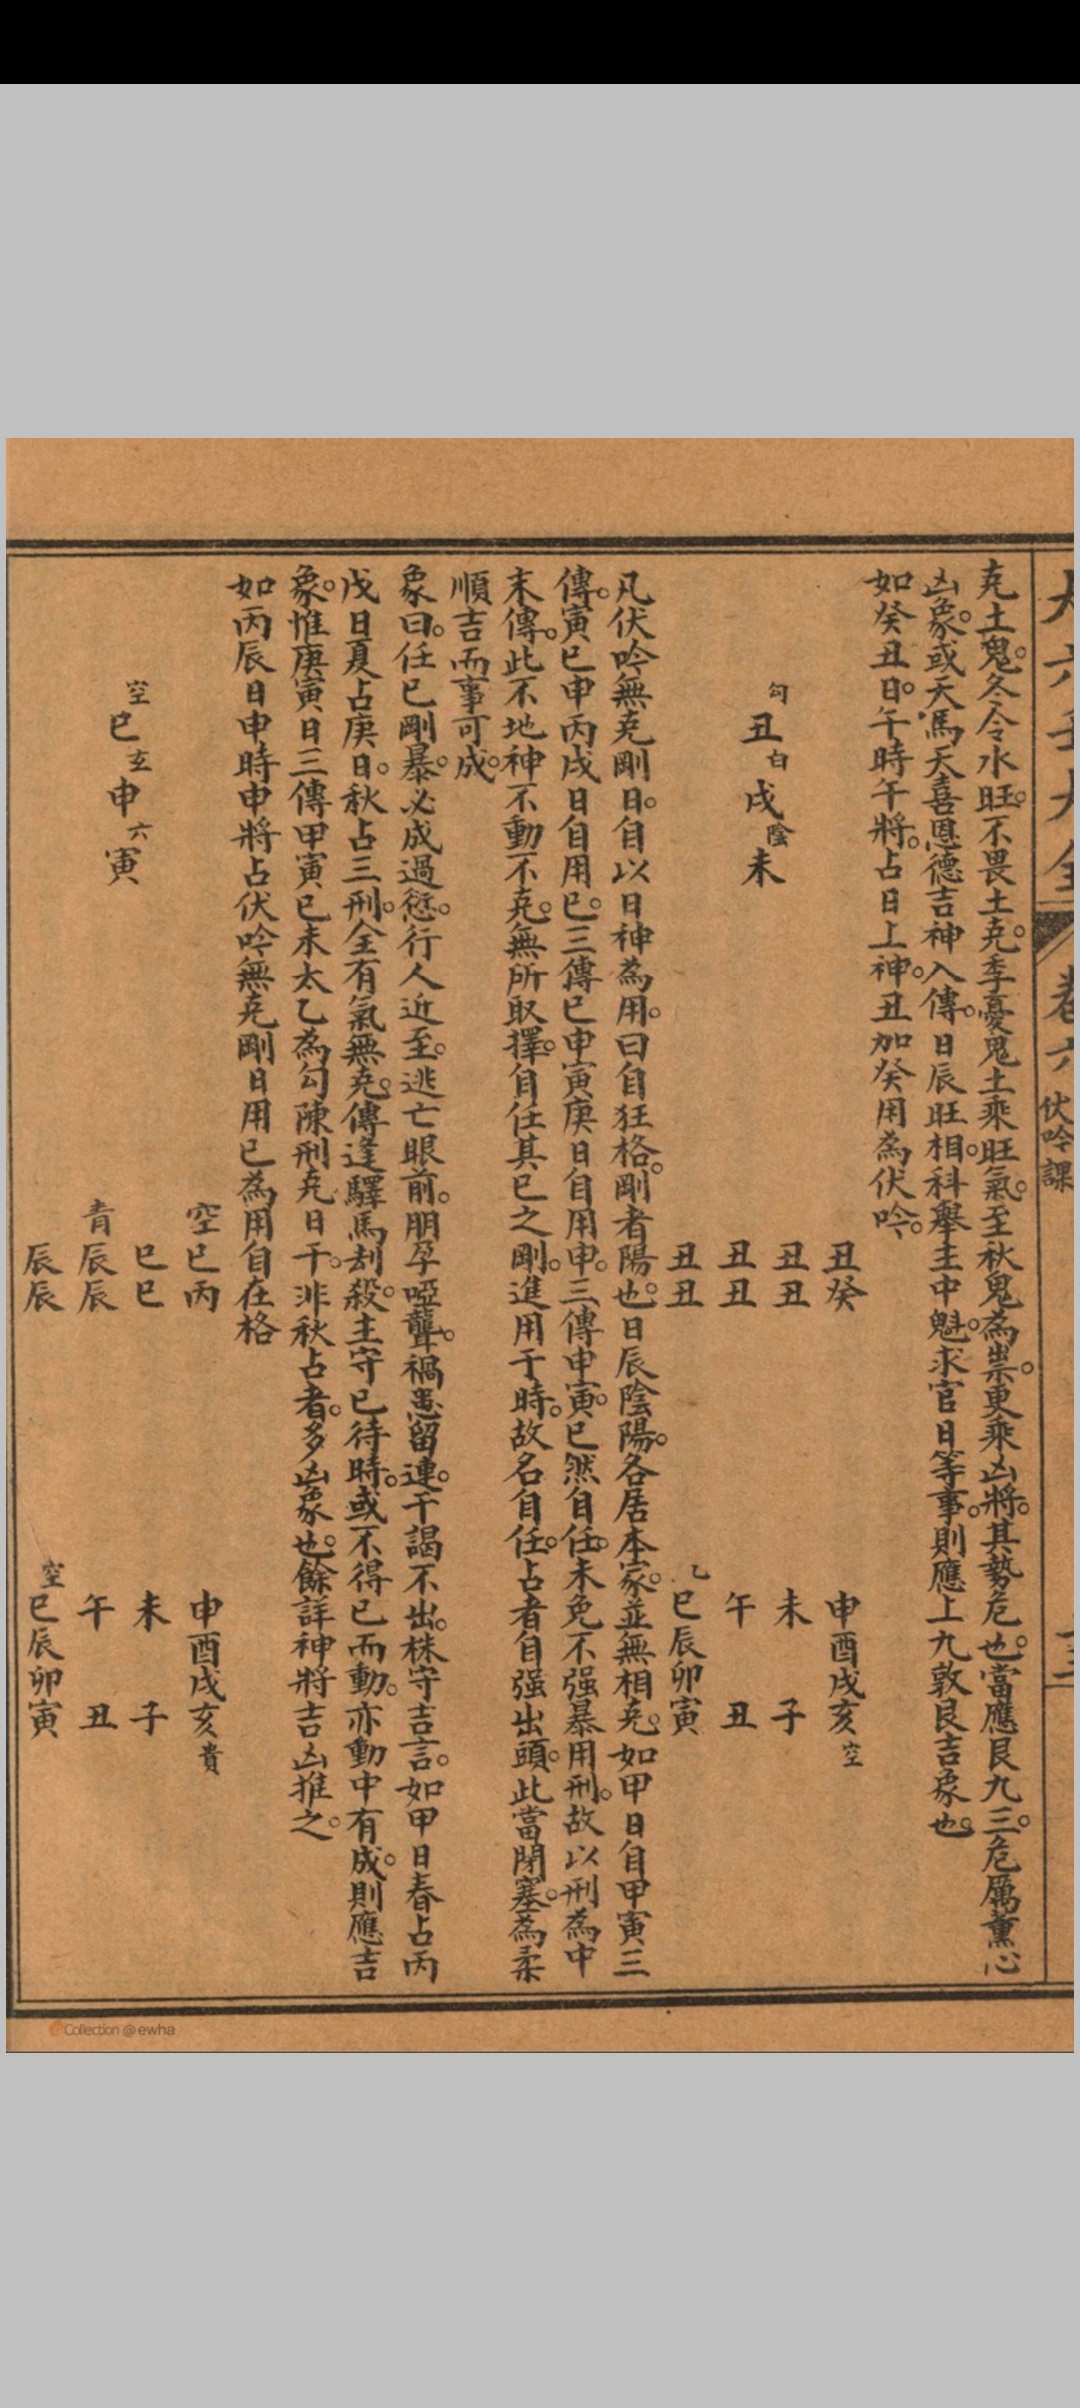 大六壬大全 卷六 伏吟課
克土鬼。冬令水旺。不畏土克。季憂鬼土乘旺氣。至秋鬼為祟。更乘凶將。其勢危也。當應艮九三。危厲薰心
凶象。或天馬天喜恩德吉神入傳。日辰旺相。科舉主中魁。求官日等事。則應上九敦艮吉象也。
如癸丑日。午時午將。占日上神。丑加癸用為伏吟。
丑癸 申酉戌亥空
丑丑 未 子
勾丑 白戌 陰未
丑丑 午 丑
丑丑 乙巳辰卯寅
凡伏吟無克剛日。自以日神為用。曰自狂格。剛者陽也。日辰陰陽。各居本家。並無相克。如甲日自甲寅三
傳。寅巳申丙戌日自用巳。三傳巳申寅庚日自用申。三傳申寅。巳然自任。未免不强暴用刑。故以刑為中
末傳。此不地神不動不克。無所取擇。自任其巳之剛。進用于時。故名自任。占者自强出頭。此當閉塞。為柔
順吉而事可成。
象曰。任巳剛暴。必成過愆。行人近至。逃亡眼前。朋孕啞聾。禍患留連。干謁不出。株守吉言。如甲日春占丙
戊日夏占庚日。秋占三刑。全有氣無克。傳逢驛馬刦殺。主守巳待時。或不得巳而動。亦動中有成。則應吉
象。惟庚寅日三傳甲寅巳未太乙為勾陳刑克日干。非秋占者。多凶象也。餘詳神將吉凶推之。
如丙辰日申時申將占伏吟無克剛日用巳為用自在格
空巳丙 申酉戌亥貴
巳巳 未 子
空巳 玄申 六寅
青辰辰 午 丑
辰辰 空巳辰卯寅
Collection @ ewha